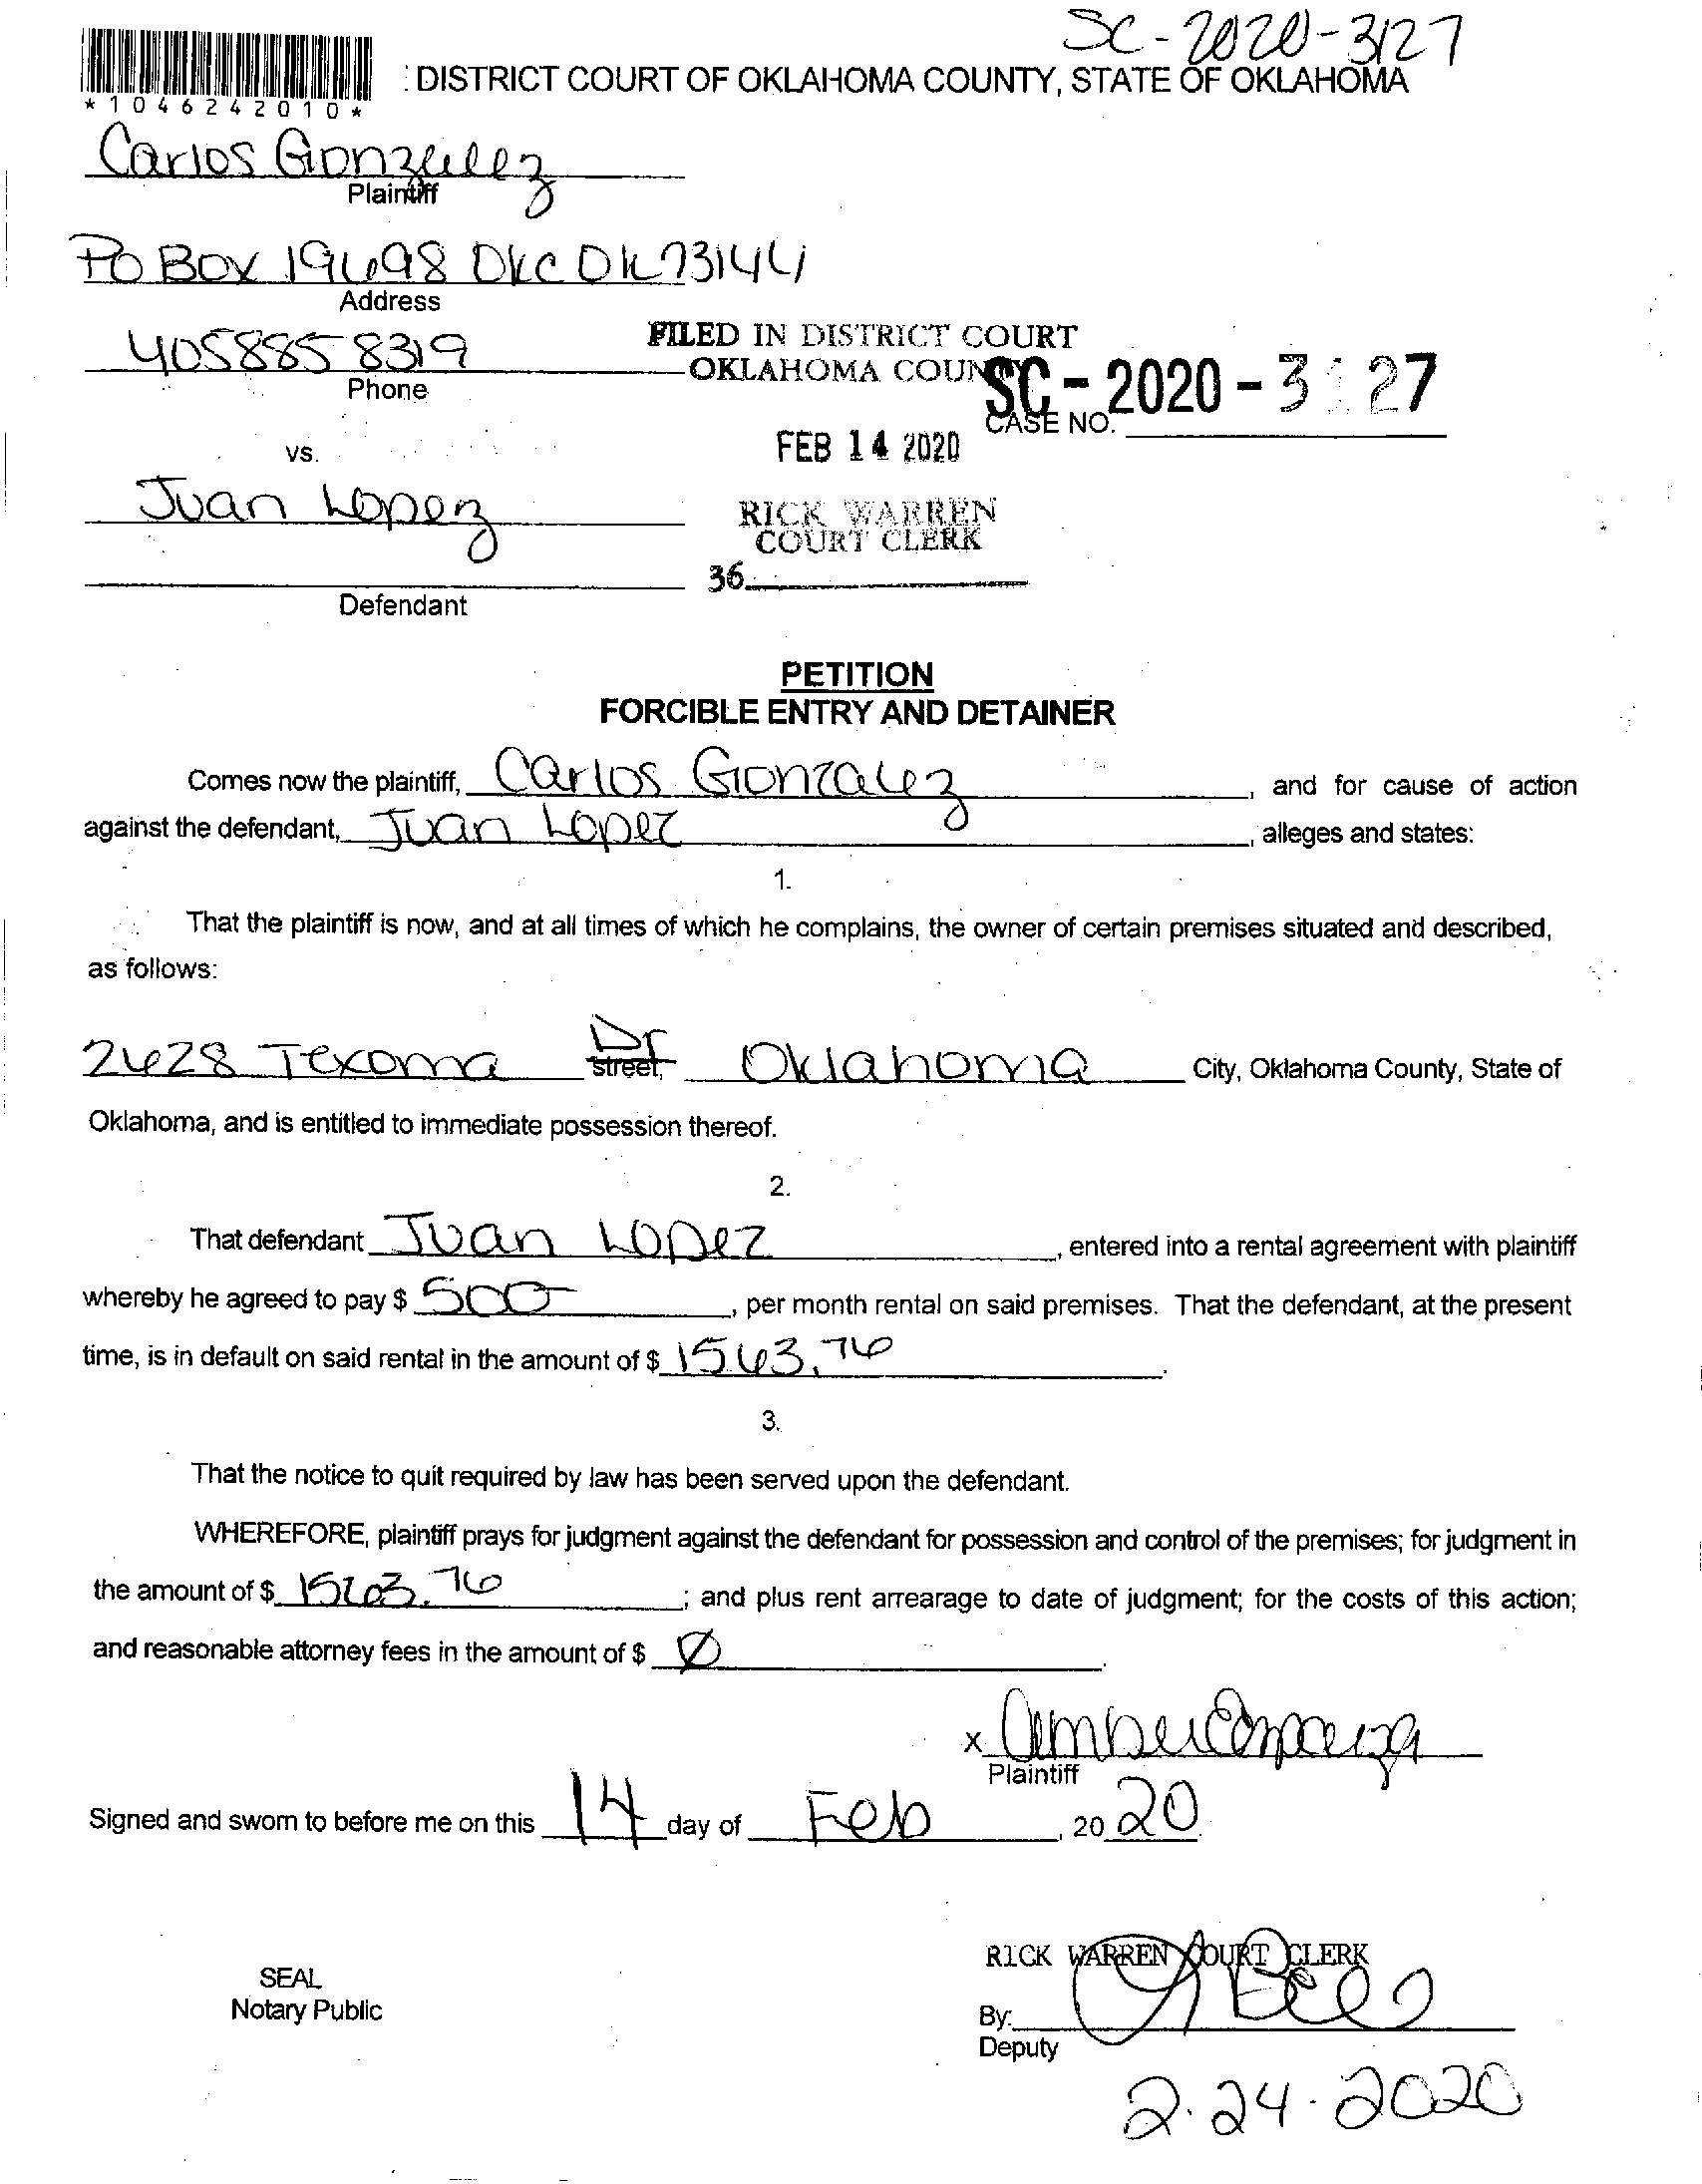 SC-2020-3127
*1046242010*
: DISTRICT COURT OF OKLAHOMA COUNTY, STATE OF OKLAHOMA
Carlos Gonzalez
Plaintiff
PO BOX 19698 OKC OK 73144
Address
405 885 8319
Phone
FILED IN DISTRICT COURT
OKLAHOMA COUNTY
SC - 2020 - 3127
CASE NO.
FEB 14 2020
vs.
Juan Lopez
RICK WARREN
COURT CLERK
36
Defendant
PETITION
FORCIBLE ENTRY AND DETAINER
Comes now the plaintiff, Carlos Gonzalez, and for cause of action
against the defendant, Juan Lopez, alleges and states:
1.
That the plaintiff is now, and at all times of which he complains, the owner of certain premises situated and described,
as follows:
2628 Texoma Dr street, Oklahoma City, Oklahoma County, State of
Oklahoma, and is entitled to immediate possession thereof.
2.
That defendant Juan Lopez, entered into a rental agreement with plaintiff
whereby he agreed to pay $ 500, per month rental on said premises. That the defendant, at the present
time, is in default on said rental in the amount of $ 1563.76.
3.
That the notice to quit required by law has been served upon the defendant.
WHEREFORE, plaintiff prays for judgment against the defendant for possession and control of the premises; for judgment in
the amount of $ 1563.76; and plus rent arrearage to date of judgment; for the costs of this action;
and reasonable attorney fees in the amount of $ Ø.
x Amber Esparza
Plaintiff
Signed and sworn to before me on this 14 day of Feb, 20 20
RICK WARREN COURT CLERK
SEAL
Notary Public
By:
Deputy
2.24.2020